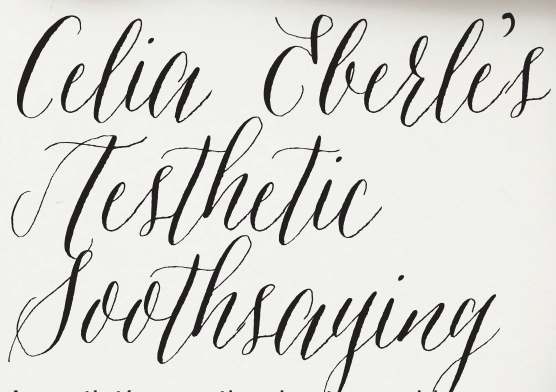 Celia Eberle's
Aesthetic
Soothsaying